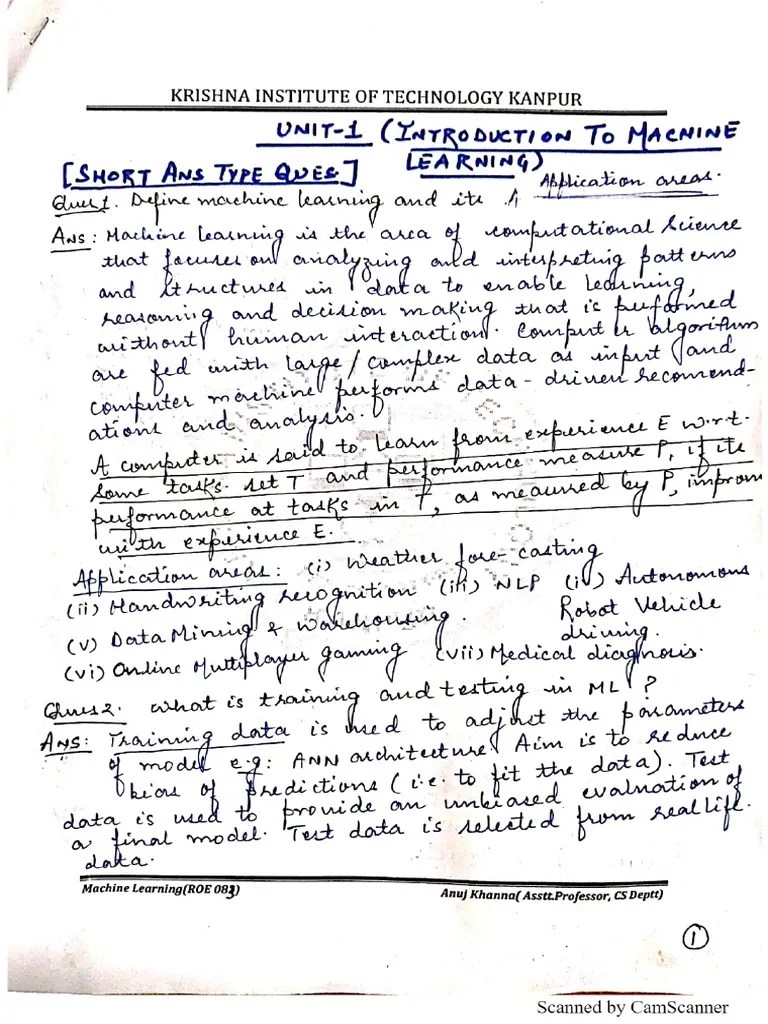 KRISHNA INSTITUTE OF TECHNOLOGY KANPUR
UNIT-1 (INTRODUCTION TO MACHINE
LEARNING)
[SHORT ANS TYPE QUES]
Ques1. Define machine learning and its Application areas.
Ans: Machine learning is the area of computational science
that focuses on analyzing and interpreting patterns
and structures in data to enable learning,
reasoning and decision making that is performed
without human interaction. Computer algorithms
are fed with large/complex data as input and
computer machine performs data-driven recomend-
ations and analysis.
A computer is said to learn from experience E w.r.t.
some tasks set T and performance measure P, if its
performance at tasks in T, as measured by P, improves
with experience E.
Application areas: (i) Weather fore-casting
(ii) Handwriting recognition (iii) NLP (iv) Autonomous
Robot Vehicle
driving.
(v) Data Mining & warehousing.
(vi) Online Multiplayer gaming (vii) Medical diagnosis.
Ques2. What is training and testing in ML?
Ans: Training data is used to adjust the parameters
of model e.g: ANN architecture. Aim is to reduce
bias of predictions (i.e. to fit the data). Test
data is used to provide an unbiased evaluation of
a final model. Test data is selected from real life
data.
Machine Learning(ROE 083) Anuj Khanna( Asstt.Professor, CS Deptt)
1
Scanned by CamScanner